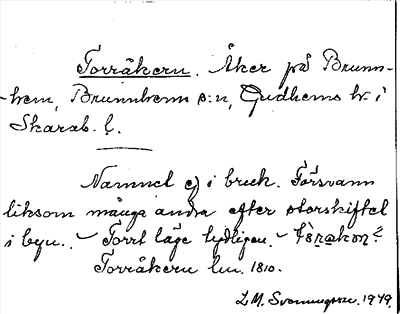 Torråkern. Åker på Brunn-
-hem, Brunnhems s:n, Gudhems hr i
Skarab. l.
Namnet ej i bruk. Försvann
liksom många andra efter storskiftet
i byn. - Torrt läge tydligen. -
Torråkern lm. 1810.
L.M. Svenungsson. 1949.